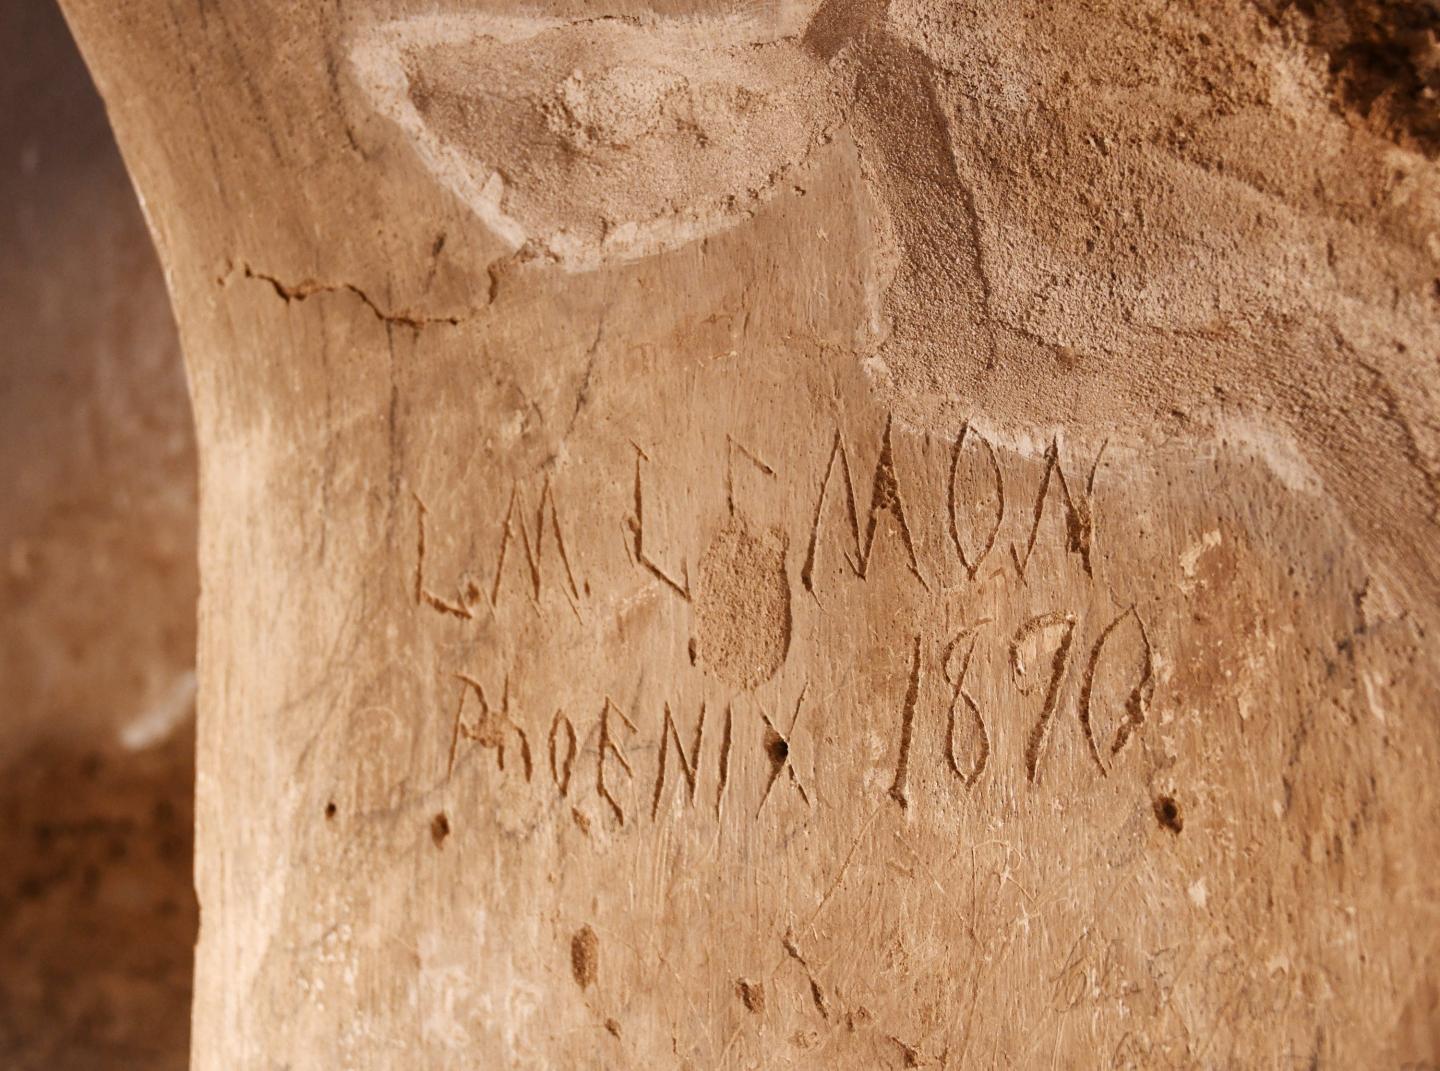 L.M. LEMON
PhOENIX 1890